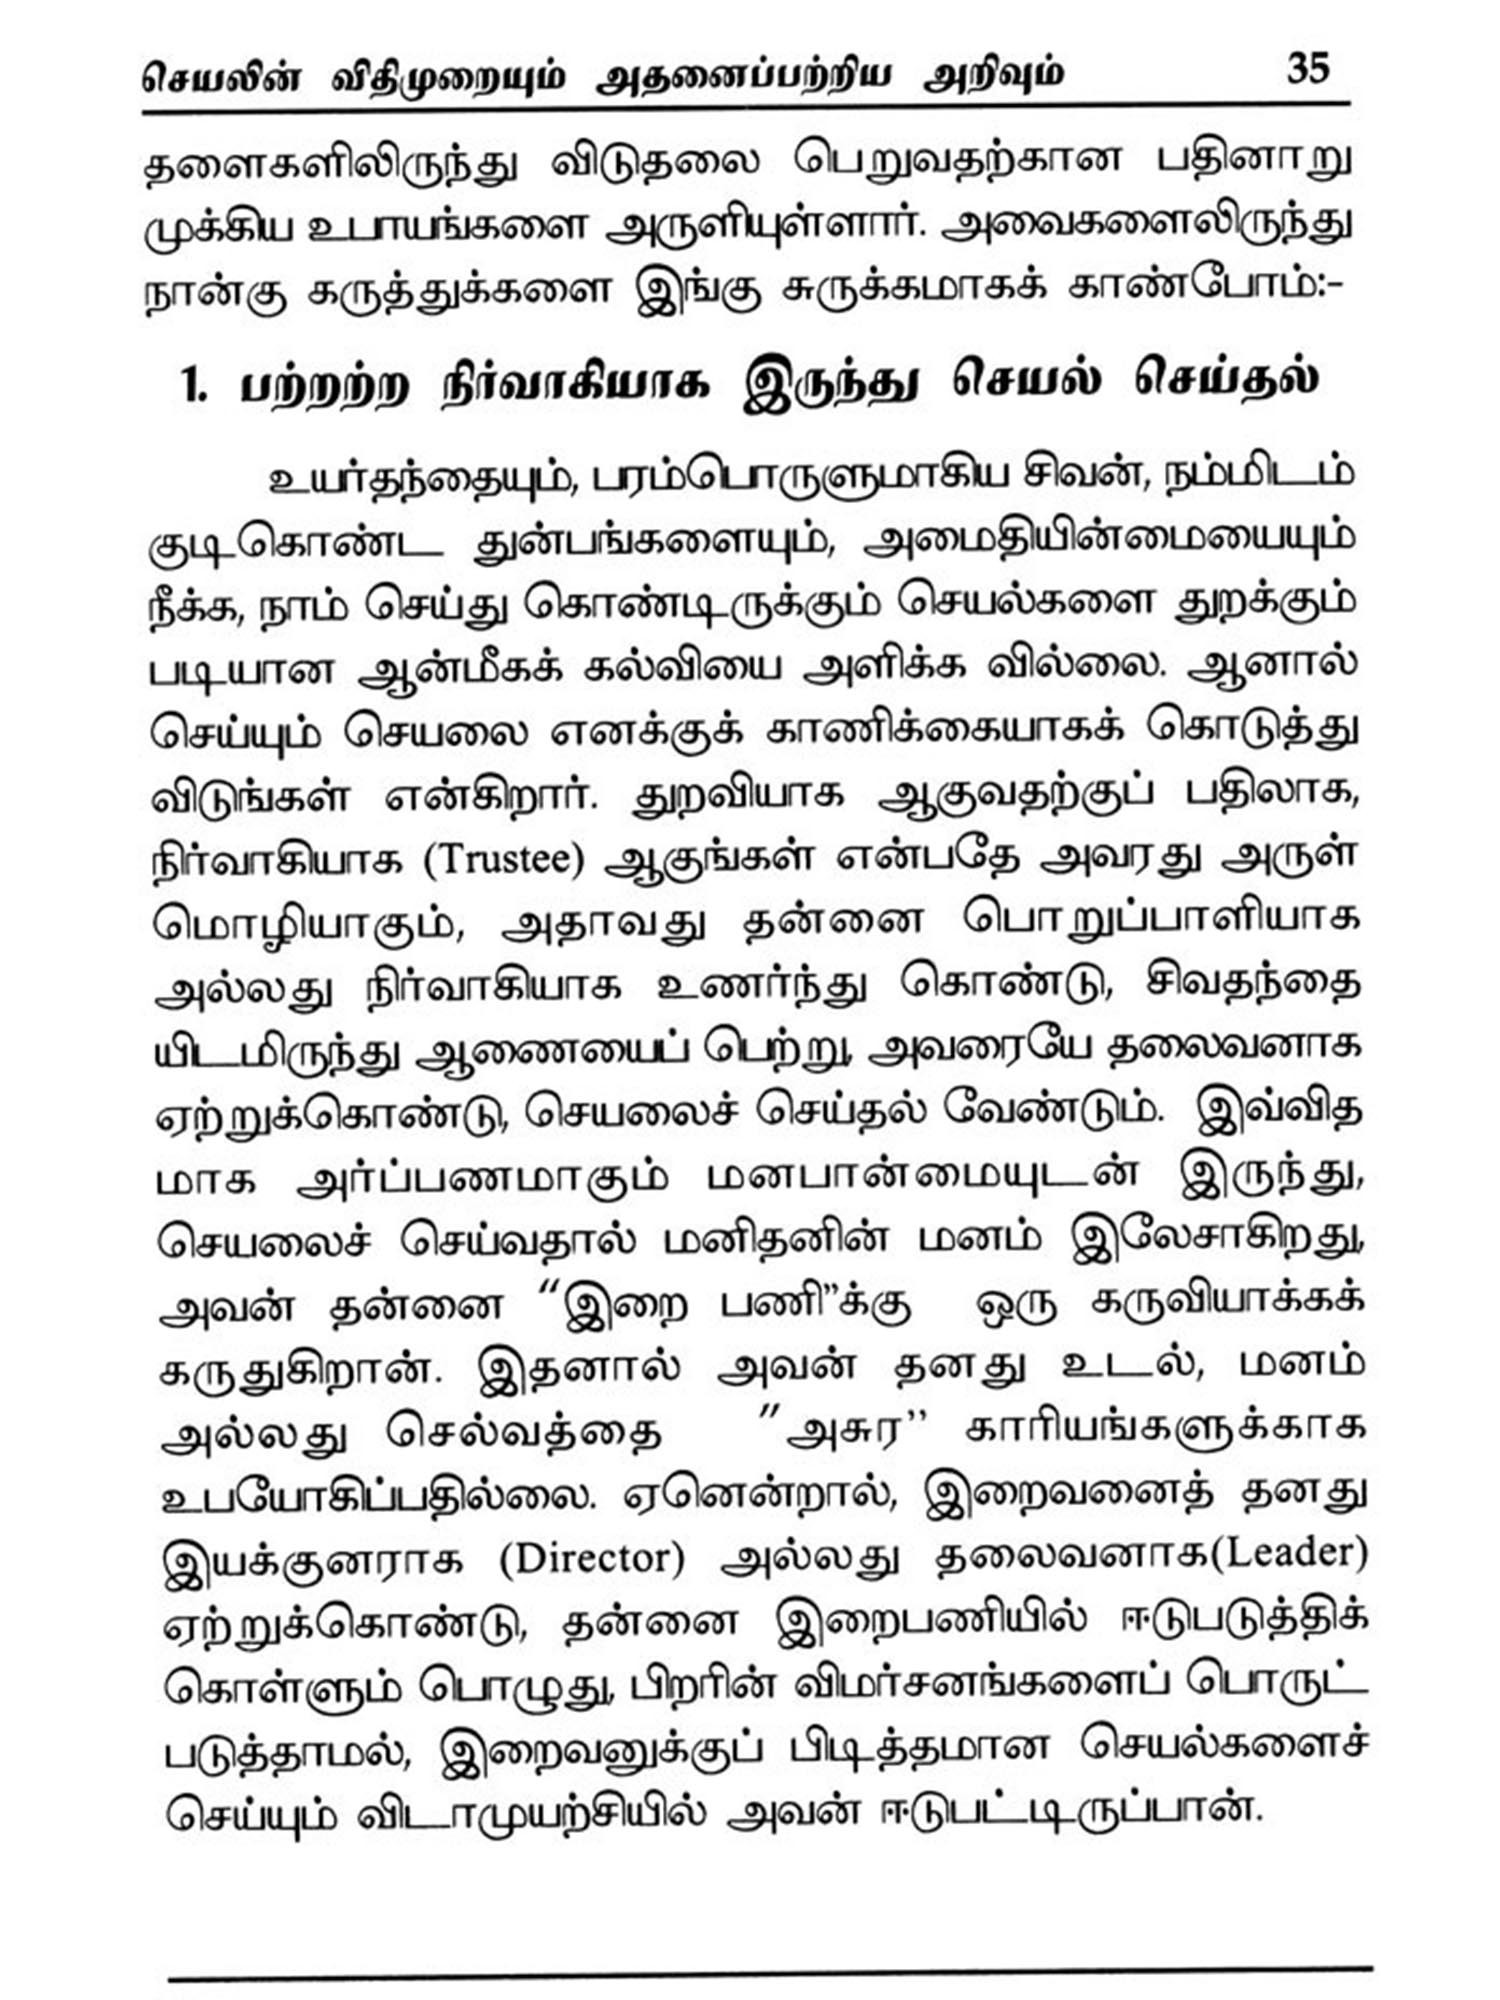 செயலின் விதிமுறையும் அதனைப்பற்றிய அறிவும் 35
தளைகளிலிருந்து விடுதலை பெறுவதற்கான பதினாறு
முக்கிய உபாயங்களை அருளியுள்ளார். அவைகளைலிருந்து
நான்கு கருத்துக்களை இங்கு சுருக்கமாகக் காண்போம்:-
1. பற்றற்ற நிர்வாகியாக இருந்து செயல் செய்தல்
உயர்தந்தையும், பரம்பொருளுமாகிய சிவன், நம்மிடம்
குடிகொண்ட துன்பங்களையும், அமைதியின்மையையும்
நீக்க, நாம் செய்து கொண்டிருக்கும் செயல்களை துறக்கும்
படியான ஆன்மீகக் கல்வியை அளிக்க வில்லை. ஆனால்
செய்யும் செயலை எனக்குக் காணிக்கையாகக் கொடுத்து
விடுங்கள் என்கிறார். துறவியாக ஆகுவதற்குப் பதிலாக,
நிர்வாகியாக (Trustee) ஆகுங்கள் என்பதே அவரது அருள்
மொழியாகும், அதாவது தன்னை பொறுப்பாளியாக
அல்லது நிர்வாகியாக உணர்ந்து கொண்டு, சிவதந்தை
யிடமிருந்து ஆணையைப் பெற்று, அவரையே தலைவனாக
ஏற்றுக்கொண்டு, செயலைச் செய்தல் வேண்டும். இவ்வித
மாக அர்ப்பணமாகும் மனபான்மையுடன் இருந்து,
செயலைச் செய்வதால் மனிதனின் மனம் இலேசாகிறது,
அவன் தன்னை “இறை பணி”க்கு ஒரு கருவியாக்கக்
கருதுகிறான். இதனால் அவன் தனது உடல், மனம்
அல்லது செல்வத்தை "அசுர’’ காரியங்களுக்காக
உபயோகிப்பதில்லை. ஏனென்றால், இறைவனைத் தனது
இயக்குனராக (Director) அல்லது தலைவனாக(Leader)
ஏற்றுக்கொண்டு, தன்னை இறைபணியில் ஈடுபடுத்திக்
கொள்ளும் பொழுது, பிறரின் விமர்சனங்களைப் பொருட்
படுத்தாமல், இறைவனுக்குப் பிடித்தமான செயல்களைச்
செய்யும் விடாமுயற்சியில் அவன் ஈடுபட்டிருப்பான்.